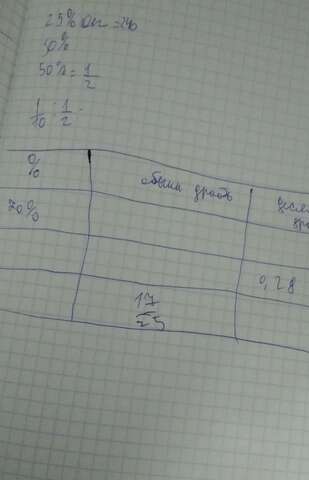 25% от =20
50%
50% = 1/2
1/10 : 1/2
% обыкн дробь
70%
0,28
17/25